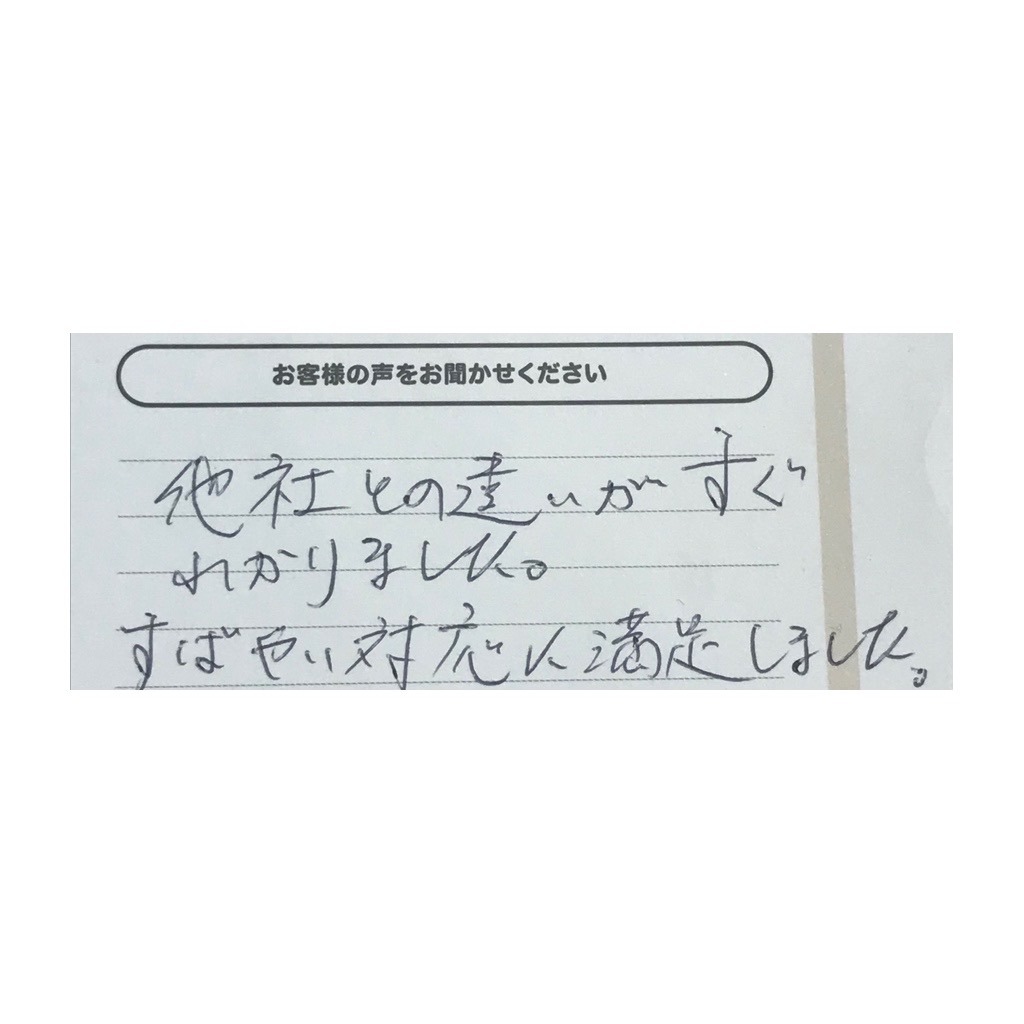 お客様の声をお聞かせください
他社との違いがすぐ
わかりました。
すばやい対応に満足しました。